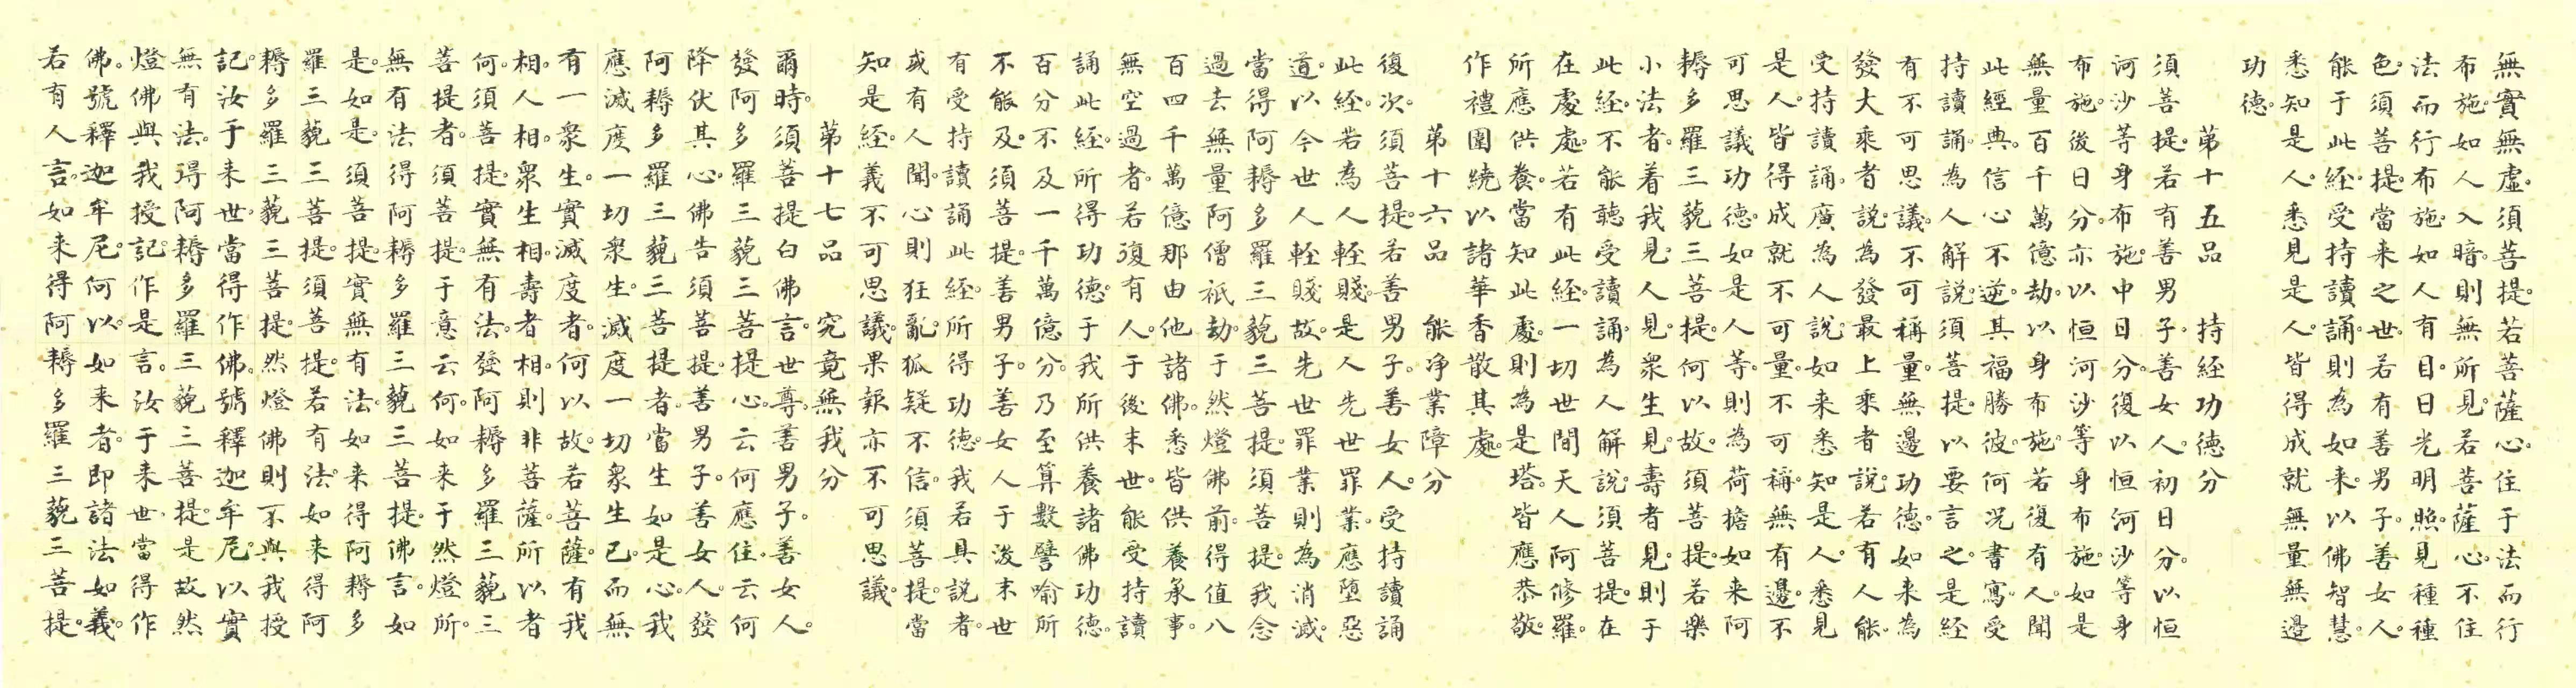 無實無虛。須菩提。若菩薩心。住于法而行
布施。如人入暗。則無所見。若菩薩心。不住
法而行布施。如人有目。日光明照。見種種
色。須菩提。當来之世。若有善男子。善女人。
能于此経。受持讀誦。則為如来。以佛智慧。
悉知是人。悉見是人。皆得成就無量無邊
功德。
第十五品 持経功德分
須菩提。若有善男子。善女人。初日分。以恒
河沙等身布施。中日分。復以恒河沙等身
布施。後日分。亦以恒河沙等身布施。如是
無量百千萬億劫。以身布施。若復有人。聞
此經典。信心不逆。其福勝彼。何況書寫受
持讀誦。為人解說。須菩提。以要言之。是経
有不可思議。不可稱量。無邊功德。如来為
發大乘者說。為發最上乘者說。若有人能。
受持讀誦。廣為人說。如来悉知是人。悉見
是人。皆得成就不可量。不可稱。無有邊。不
可思議功德。如是人等。則為荷擔如来阿
耨多羅三藐三菩提。何以故。須菩提。若樂
小法者。着我見。人見。衆生見。壽者見。則于
此経。不能聽受讀誦。為人解說。須菩提。在
在處處。若有此経。一切世間天人阿修羅。
所應供養。當知此處。則為是塔。皆應恭敬。
作禮圍繞。以諸華香散其處。
第十六品 能净業障分
復次。須菩提。若善男子。善女人。受持讀誦
此経。若為人輕賤。是人先世罪業。應墮惡
道。以今世人輕賤故。先世罪業則為消滅。
當得阿耨多羅三藐三菩提。須菩提。我念
過去無量阿僧祇劫。于然燈佛前。得值八
百四千萬億那由他諸佛。悉皆供養承事。
無空過者。若復有人。于後末世。能受持讀
誦此経。所得功德。于我所供養諸佛功德。
百分不及一。千萬億分。乃至算數譬喻所
不能及。須菩提。善男子。善女人于後末世
有受持讀誦此経。所得功德。我若具説者。
或有人聞。心則狂亂。狐疑不信。須菩提。當
知是経。義不可思議。果報亦不可思議。
第十七品 究竟無我分
爾時。須菩提白佛言。世尊。善男子。善女人。
發阿多羅三藐三菩提心。云何應住。云何
降伏其心。佛告須菩提。善男子。善女人。發
阿耨多羅三藐三菩提者。當生如是心。我
應滅度一切衆生。滅度一切衆生已。而無
有一衆生。實滅度者。何以故。若菩薩。有我
相。人相。衆生相。壽者相。則非菩薩。所以者
何。須菩提。實無有法。發阿耨多羅三藐三
菩提者。須菩提。于意云何。如来于然燈所。
無有法得阿耨多羅三藐三菩提。佛言。如
是。如是。須菩提。實無有法。如来得阿耨多
羅三藐三菩提。須菩提。若有法。如来得阿
耨多羅三藐三菩提。然燈佛則不與我授
記。汝于来世。當得作佛。號釋迦牟尼。以實
無有法。得阿耨多羅三藐三菩提。是故然
燈佛與我授記。作是言。汝于来世。當得作
佛。號釋迦牟尼。何以。如来者。即諸法如義。
若有人言。如来得阿耨多羅三藐三菩提。